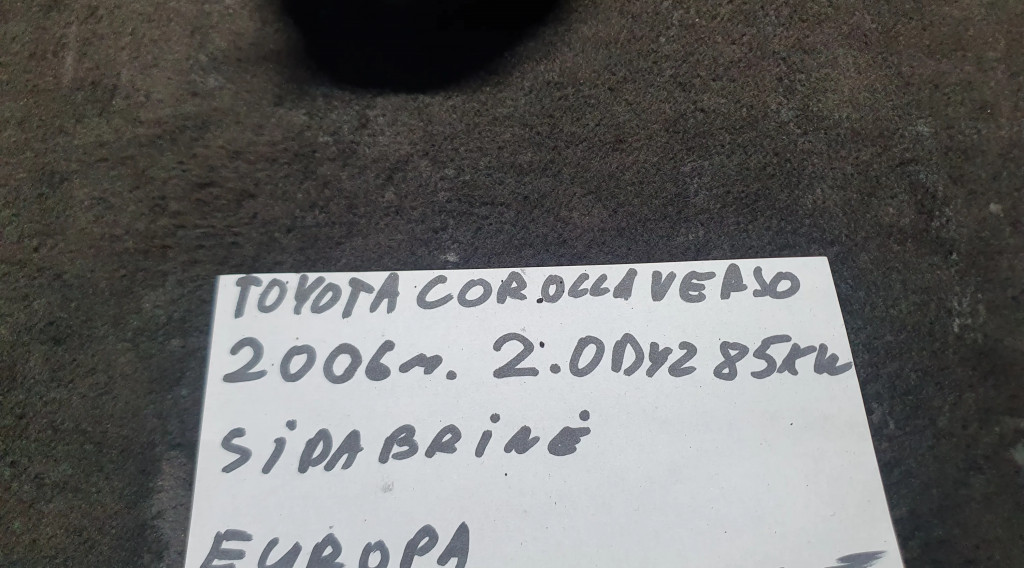 TOYOTA COROLLA VERSO
2006m. 2.0DYZ 85KW
SIDABRINĖ
EUROPA